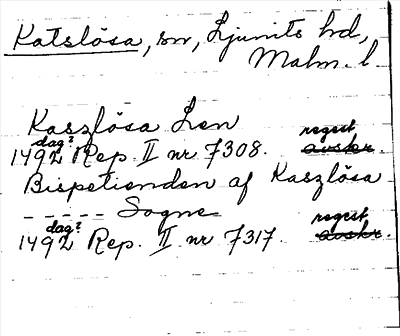 Katslösa, sn, Ljunits hd,
Malm. l.
Kaszlösa Len
dag?
regest
1492 Rep. II nr 7308. avskr.
Bispetienden af Kaszlösa
- - - - - Sogne
dag?
regest
1492 Rep. II nr 7317. avskr.